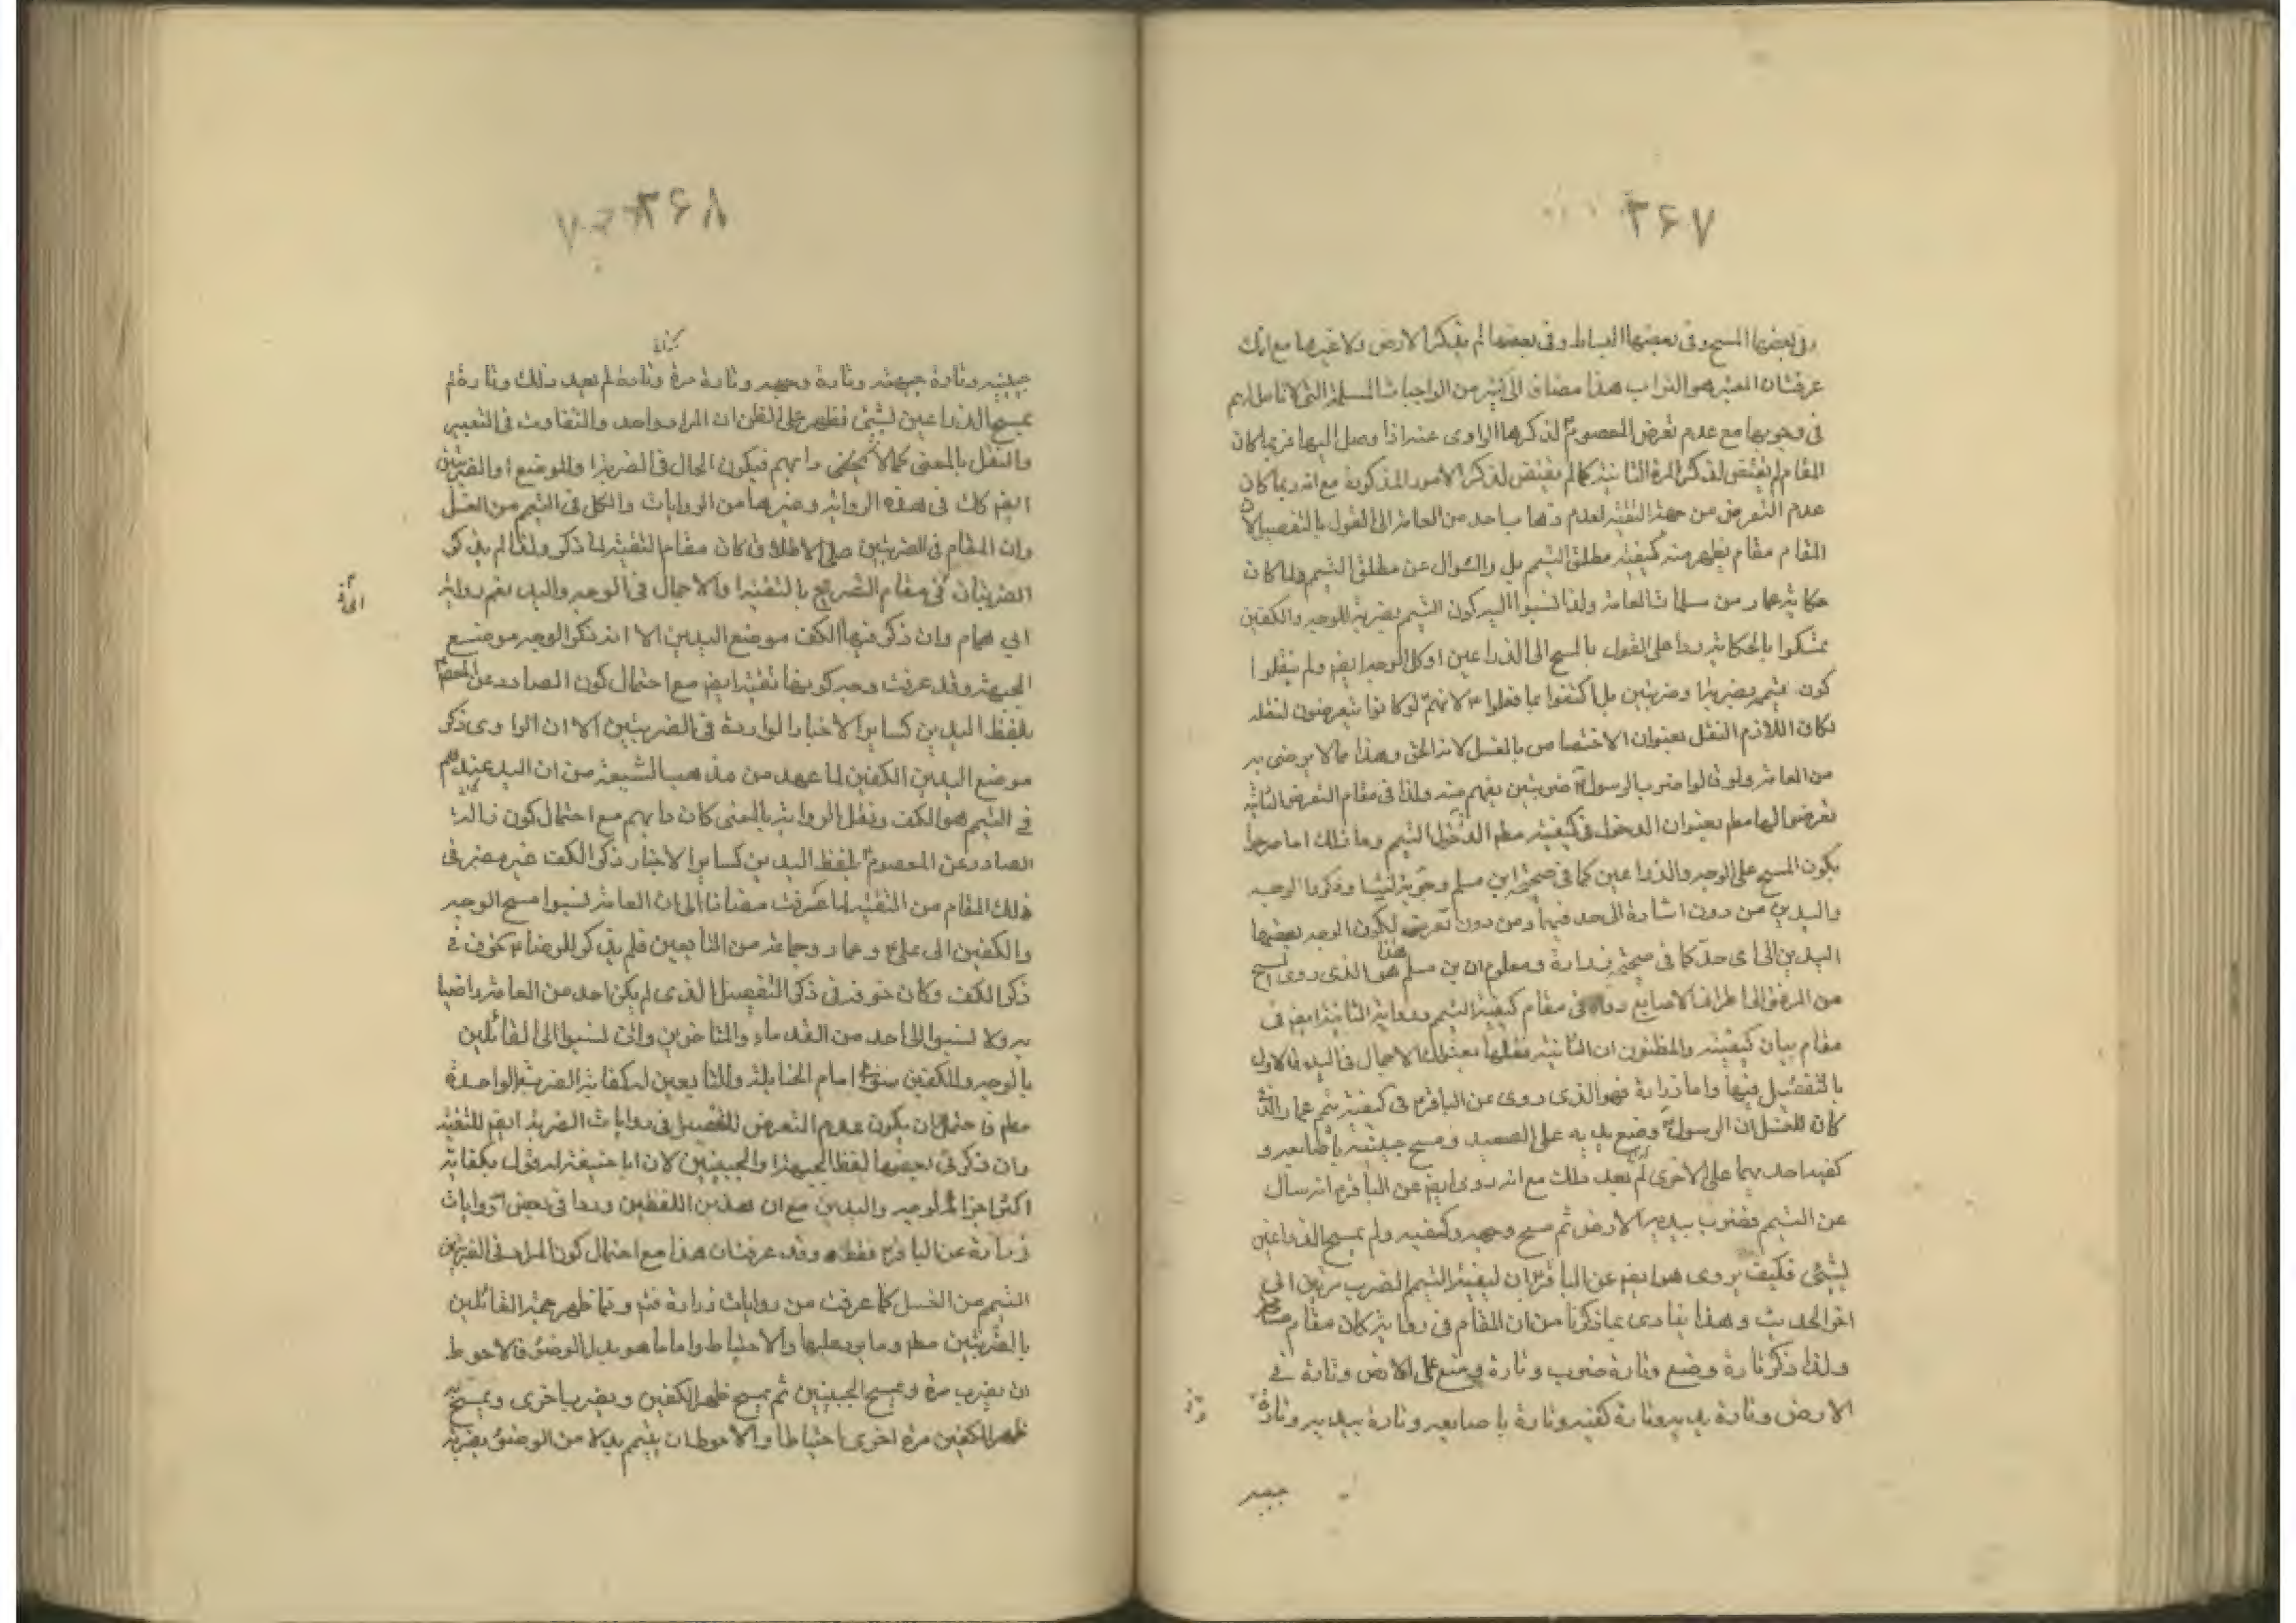 ۳۶۷
وفى بعضها المسح وفى بعضها البساط وفى بعضها لم يذكر الارض ولا غيرها مع انك
عرفت ان المعتبر هو التراب هذا مضاف الى كثير من الواجبات المسلمة التى لا تامل لهم
فى وجوبها مع عدم تعرض المعصوم لذكرها الراوى عنه اذا وصل اليها فربما كان
المقام لم يقتض لذكر المرة الثانية كما لم يقتض لذكر الامور المذكورة مع انه ربما كان
عدم التعرض من جهة التقية لعدم ذهاب احد من العامة الى القول بالتفصيل لان
المقام مقام يظهر منه كيفية مطلق التيمم بل والسؤال عن مطلق التيمم ولما كان
حكاية عمار من مسلمات العامة ولذا نسبوا اليه كون التيمم بضربة للوجه والكفين
تمسكوا بالحكاية ردا على القول بالمسح الى الذراعين او كل الوجه ايضم ولم ينقلوا
كون تيممه بضربة او ضربتين بل اكتفوا بما فعلوا لانهم لو كانوا يتعرضون لنقله
لكان اللازم النقل بعنوان الاختصاص بالغسل لانه الحق وهذا مما لا يرضى به
من العامة ولو قالوا ضرب الرسول ضربتين يفهم منه ولذا فى مقام التعرض للثانية
تعرضوا لها مطم بعنوان الدخول فى كيفية مطم التيمم وما ذلك اما صرحوا
بكون المسح على الوجه والذراعين كما فى صحيحة ابن مسلم وذكروا الوجه
واليدين من دون اشارة الى حد فيهما ومن دون تعرض لكون الوجه بعضها
اليدين الى اى حد كما فى صحيحة زرارة ومعلوم ان بن مسلم هذا هو الذى روى المسح
من المرفق الى اطراف الاصابع رواه فى مقام كيفية التيمم ورواية الثانية ايضم فى
مقام بيان كيفيته والمظنون ان الثانية نقلها بعنوان الاجمال فى اليد والاول
بالتفصيل فيها واما زرارة فهو الذى روى عن الباقر فى كيفية تيمم عمار الذى
كان للغسل ان الرسول وضع يديه على الصعيد ومسح جبينه باصابعه و
كفيه احديهما على الاخرى ثم لم يعد ذلك مع انه روى ايضم عن الباقر انه سال
عن التيمم فضرب بيديه الارض ثم مسح وجهه وكفيه ولم يمسح الذراعين
بشئ فكيف يروى هو ايضم عن الباقر ان كيفية التيمم الضرب مرتين الى
اخر الحديث وهذا ينادى بما ذكرنا من ان المقام فى رواية كان مقام
ولذا ذكر تارة وضع وتارة ضرب وتارة وضع على الارض وتارة فى
الارض وتارة يديه وتارة كفيه وتارة باصابعه وتارة بيديه وتارة
جبينه
۳۶۸
جبينيه وتارة جبهته وتارة وجهه وتارة مرة وتارة لم يعد ذلك وتارة لم
يمسح الذراعين بشئ فظهر على الظن ان المراد واحد والتفاوت فى التعبير
والنقل بالمعنى كما لا يخفى دابهم فيكون الحال فى الضربة والموضع او الضربتين
ايضم كك فى هذه الرواية وغيرها من الروايات والكل فى التيمم من الغسل
وان المقام فى الضربتين على الاطلاق كان مقام التقية لما ذكر ولذا لم يذكر
الضربتان فى مقام التصريح بالتقية والاجمال فى الوجه واليد نعم رواية
ابي همام وان ذكر فيها الكف موضع اليدين الا انه ذكر الوجه موضع
الجبهة وقد عرفت وجه كونها تقية ايضم مع احتمال كون الصادر عن المعصوم
بلفظ اليدين كساير الاخبار الواردة فى الضربتين الا ان الراوى ذكر
موضع اليدين الكفين لما عهد من مذهب الشيعة من ان اليد عندهم
فى التيمم هو الكف ونقل الرواية بالمعنى كان دابهم مع احتمال كون
الصادر عن المعصوم بلفظ اليدين كساير الاخبار ذكر الكف غير مضر فى
ذلك المقام من التقية لما عرفت مضافا الى ان العامة نسبوا مسح الوجه
والكفين الى على وعمار وجماعة من التابعين فلم يذكر للرضا خوف فى
ذكر الكف وكان خوفه فى ذكر التفصيل الذى لم يكن احد من العامة راضيا
به ولا نسبوا الى احد من القدماء والمتاخرين وان نسبوا الى القائلين
بالوجه والكفين سوى امام الحنابلة والتابعين له كفاية الضربة الواحدة
مطم فاحتمال ان يكون عدم التعرض للتفصيل فى روايات الضربة ايضم للتقية
وان ذكر فى بعضها لفظ الجبهة والجبينين لان ابا حنيفة له قول بكفاية
اكثر اجزاء الوجه واليدين مع ان هذين اللفظين وردا فى بعض روايات
زرارة عن الباقر فقط وقد عرفت ان هذا مع احتمال كون المراد فى الضربتين
التيمم من الغسل كما عرفت من روايات زرارة فتم ومما ظهر حجة القائلين
بالضربتين مطم وما يرد عليها والاحتياط واما ما هو بدل الوضوء فالاحوط
ان يضرب مرة ويمسح الجبينين ثم يمسح ظهر الكفين ويضرب اخرى ويمسح به
ظهر الكفين مرة اخرى احتياطا والاحوط ان يتيمم بدلا من الوضوء بضربة